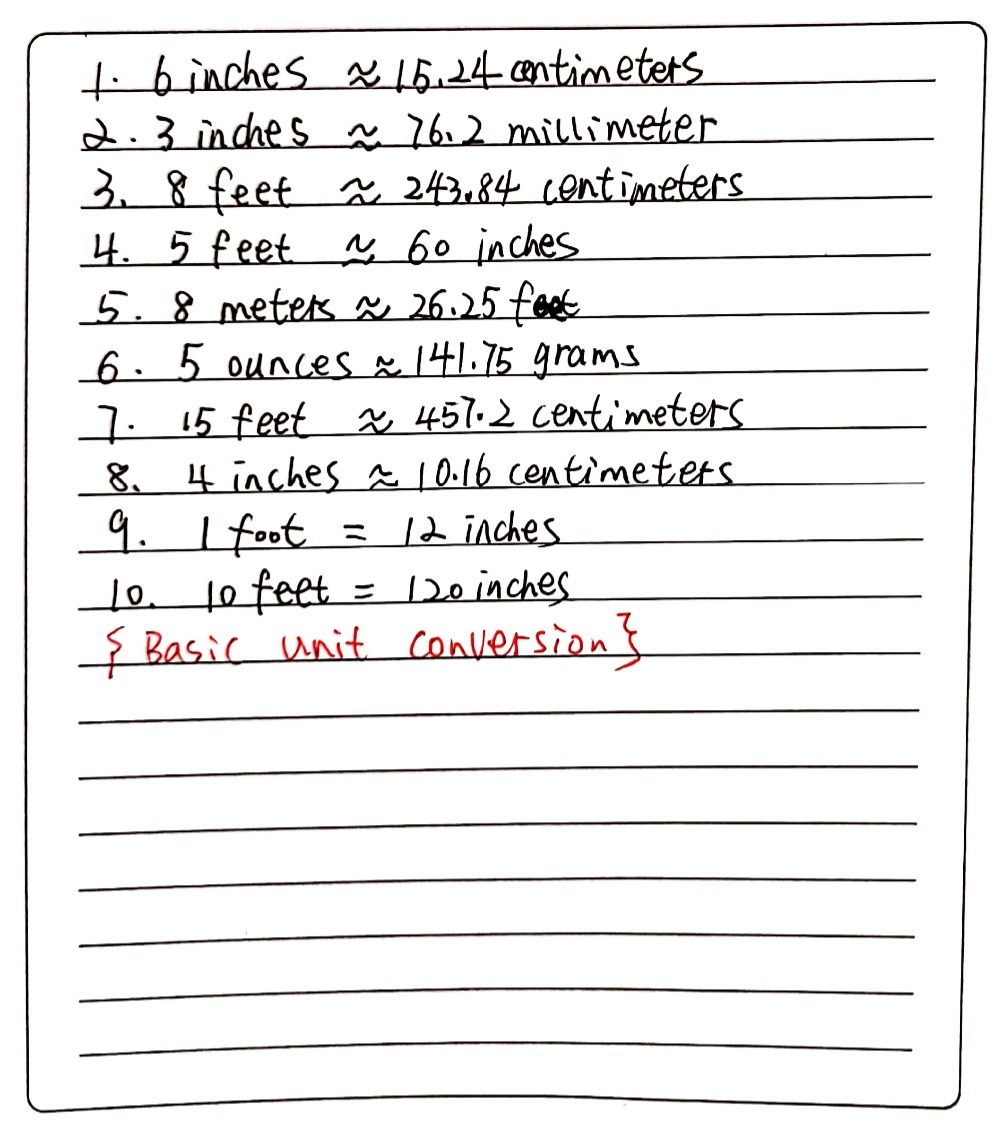 1. 6 inches ≈ 15.24 centimeters
2. 3 inches ≈ 76.2 millimeter
3. 8 feet ≈ 243.84 centimeters
4. 5 feet ≈ 60 inches
5. 8 meters ≈ 26.25 feet
6. 5 ounces ≈ 141.75 grams
7. 15 feet ≈ 457.2 centimeters
8. 4 inches ≈ 10.16 centimeters
9. 1 foot = 12 inches
10. 10 feet = 120 inches
{Basic unit conversion}